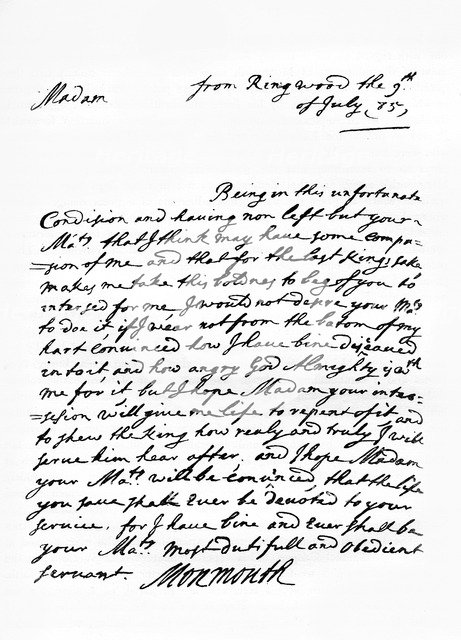 from Ringwood the 9th
Madam of July (85)
Being in this unfortunate
Condision and having non left but your
Maty. that I think may have some compa=
=sion of me and that for the last Kings sake
makes me take this boldnes to beg of you to
intersed for me, I would not desire your Maty
to doe it if I wear not from the botom of my
hart convinced how I have bine disceaved
into it and how angry God Almighty is with
me for it but I hope Madam your inter=
=sesion will give me life to repent of it and
to shew the King how realy and truly I will
serve him hear after. and I hope Madam
your Maty. will be convinced that the life
you save shall Ever be devoted to your
service, for I have bine and Ever shall be
your Maty. most dutifull and obedient
servant. Monmouth